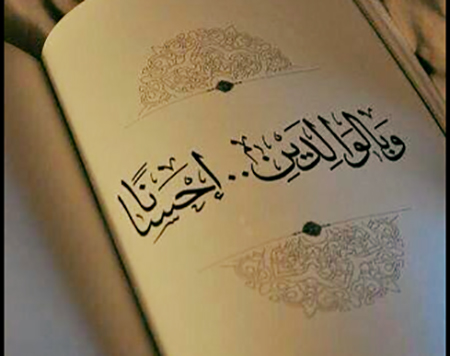 وَبِالوَالِدَيْنِ.. إِحْسَانًا